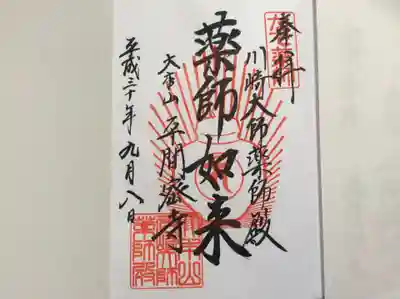 奉拝
川崎大師薬師殿
薬師如来
大本山 平間寺
平成三十年九月八日